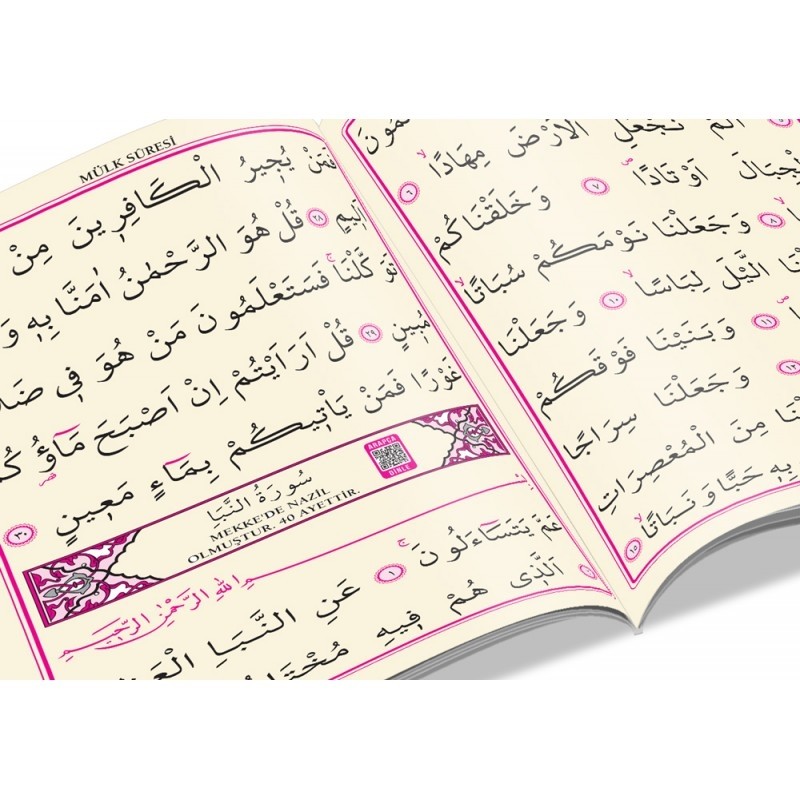 MÜLK SÛRESİ
فَمَنْ يُجٖيرُ الْكَافِرٖينَ مِنْ
اَلٖيمٍ ﴿٢٨﴾ قُلْ هُوَ الرَّحْمٰنُ اٰمَنَّا بِهٖ وَ
تَوَكَّلْنَاۚ فَسَتَعْلَمُونَ مَنْ هُوَ فٖى
مُبٖينٍ ﴿٢٩﴾ قُلْ اَرَاَيْتُمْ اِنْ اَصْبَحَ مَٓاؤُ۬كُمْ
غَوْرًا فَمَنْ يَاْتٖيكُمْ بِمَٓاءٍ مَعٖينٍ ﴿٣٠﴾
ARAPÇA
DİNLE
سُورَةُ النَّبَاِ
MEKKE'DE NAZİL
OLMUŞTUR. 40 AYETTİR.
اللهِ الرَّحْمٰنِ الرَّحٖيمِ
عَمَّ يَتَسَٓاءَلُونَۚ ﴿١﴾ عَنِ النَّبَاِ
اَلَّذٖى هُمْ فٖيهِ
اَلَمْ نَجْعَلِ الْاَرْضَ مِهَادًاۙ ﴿٦﴾
اَوْتَادًاۖ ﴿٧﴾ وَخَلَقْنَاكُمْ
﴿٨﴾ وَجَعَلْنَا نَوْمَكُمْ سُبَاتًاۙ
الَّيْلَ لِبَاسًاۙ ﴿١٠﴾ وَجَعَلْنَا
﴿١١﴾ وَبَنَيْنَا فَوْقَكُمْ
﴿١٢﴾ وَجَعَلْنَا سِرَاجًا
مِنَ الْمُعْصِرَاتِ
بِهٖ حَبًّا وَنَبَاتًاۙ ﴿١٥﴾